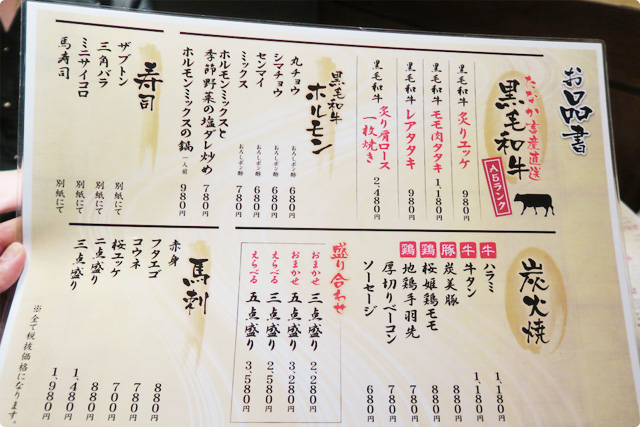 お品書
たなか畜産直送
黒毛和牛
A5ランク
黒毛和牛 炙りエッケ 980円
黒毛和牛 モモ肉タタキ 1,180円
黒毛和牛 レアタタキ 980円
黒毛和牛 炙り肩ロース一枚焼き 2,480円
黒毛和牛
ホルモン
丸チョウ おろしポン酢 680円
シマチョウ おろしポン酢 680円
センマイ おろしポン酢 680円
ミックス おろしポン酢 780円
ホルモンミックスと
季節野菜の塩ダレ炒め 780円
ホルモンミックスの鍋 一人前 980円
寿司
ザブトン 別紙にて
三角バラ 別紙にて
ミニサイコロ 別紙にて
馬寿司 別紙にて
炭火焼
牛 ハラミ 1,180円
牛 牛タン 1,180円
豚 炭美豚 880円
鶏 桜姫鶏モモ 780円
鶏 地鶏手羽先 780円
厚切りベーコン 780円
ソーセージ 680円
盛り合わせ
おまかせ 三点盛り 2,280円
おまかせ 五点盛り 3,280円
えらべる 三点盛り 2,580円
えらべる 五点盛り 3,580円
馬刺
赤身 880円
フタエゴ 780円
コウネ 700円
桜エッケ 880円
二点盛り 1,480円
三点盛り 1,980円
※全て税抜価格になります。